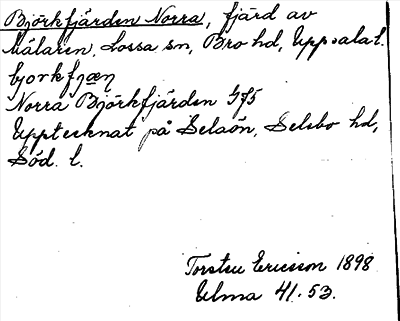 Björkfjärden Norra, fjärd av
Mälaren, Lossa sn, Bro hd, Uppsala l.
bjorkfjæn
Norra Björkfjärden G75
Upptecknat på Selaön, Selebo hd,
Söd. l.
Torsten Ericsson 1898
Ulma 41.53.